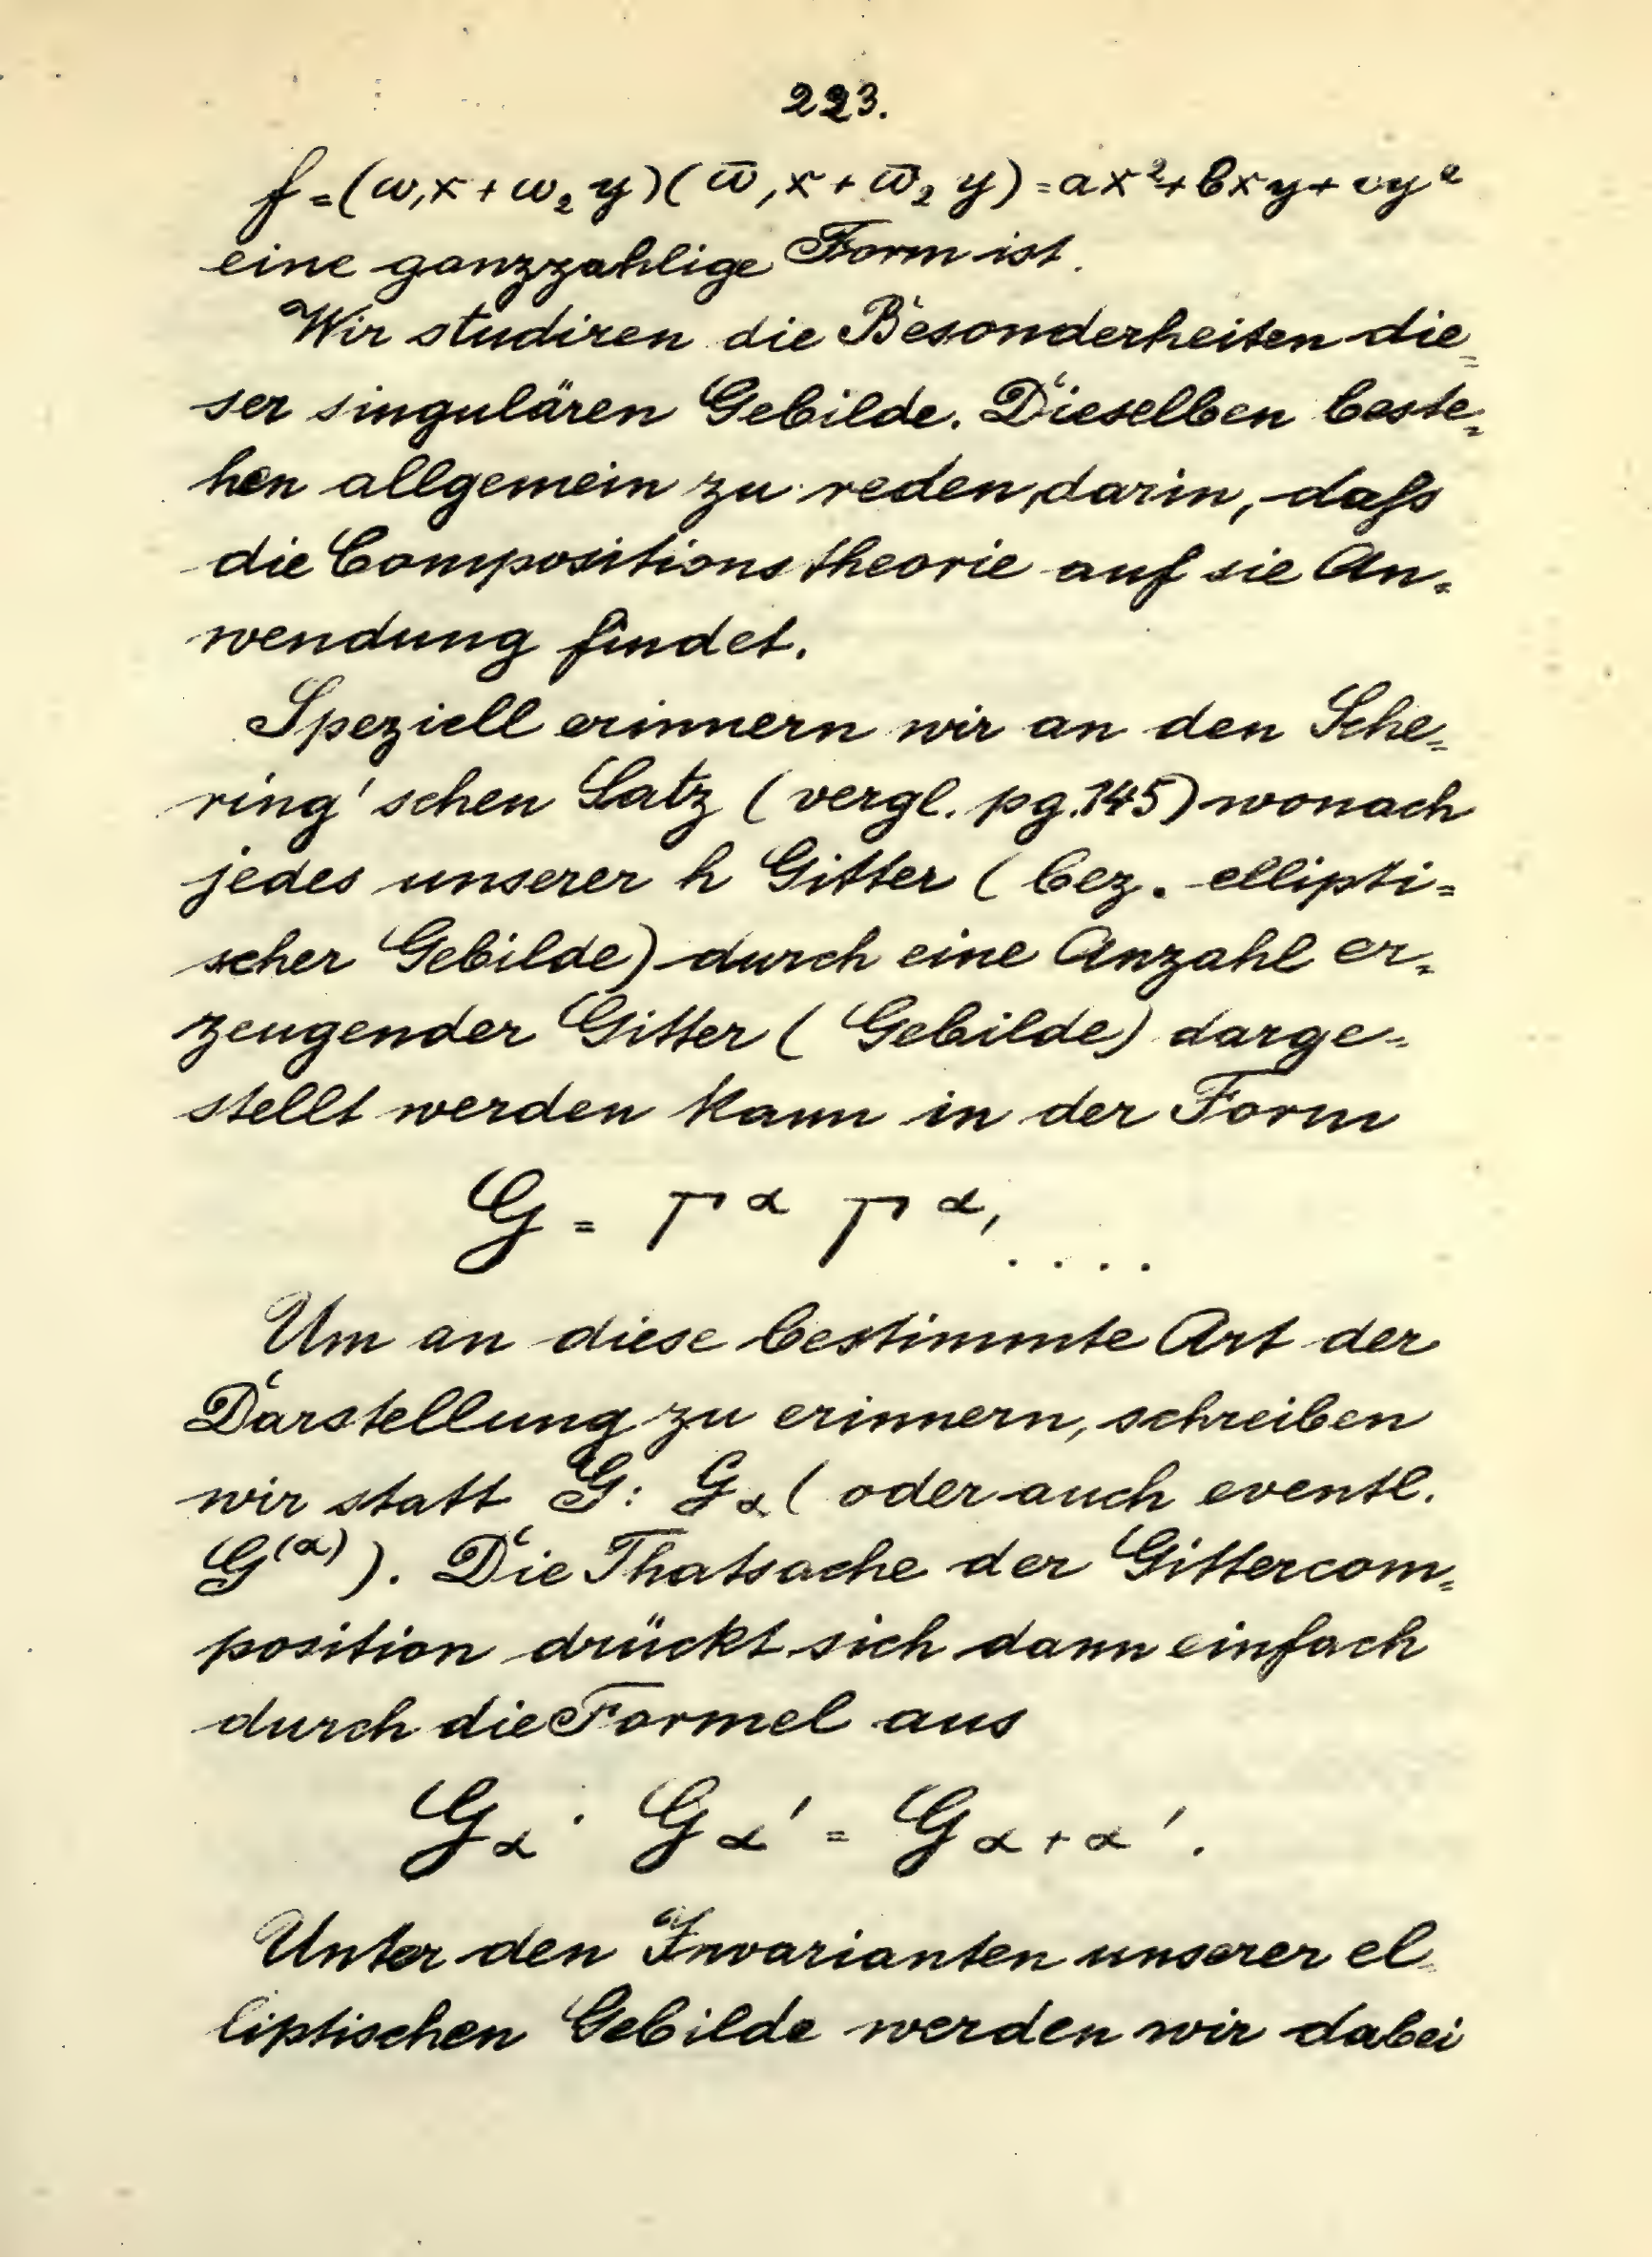 223.
f=(ω₁x+ω₂y)(ω̄₁x+ω̄₂y)=ax²+bxy+cy²
eine ganzzahlige Form ist.
Wir studiren die Besonderheiten die=
ser singulären Gebilde. Dieselben beste=
hen allgemein zu reden, darin, daſs
die Compositionstheorie auf sie An=
wendung findet.
Speziell erinnern wir an den Sche=
ring'schen Satz (vergl. pg. 145) wonach
jedes unserer h Gitter (bez. ellipti=
scher Gebilde) durch eine Anzahl er=
zeugender Gitter (Gebilde) darge=
stellt werden kann in der Form
G = Γ^α Γ^α, ....
Um an diese bestimmte Art der
Darstellung zu erinnern, schreiben
wir statt G: G_α (oder auch eventl.
G^(α)). Die Thatsache der Gittercom=
position drückt sich dann einfach
durch die Formel aus
G_α · G_α' = G_α+α'.
Unter den Invarianten unserer el=
liptischen Gebilde werden wir dabei